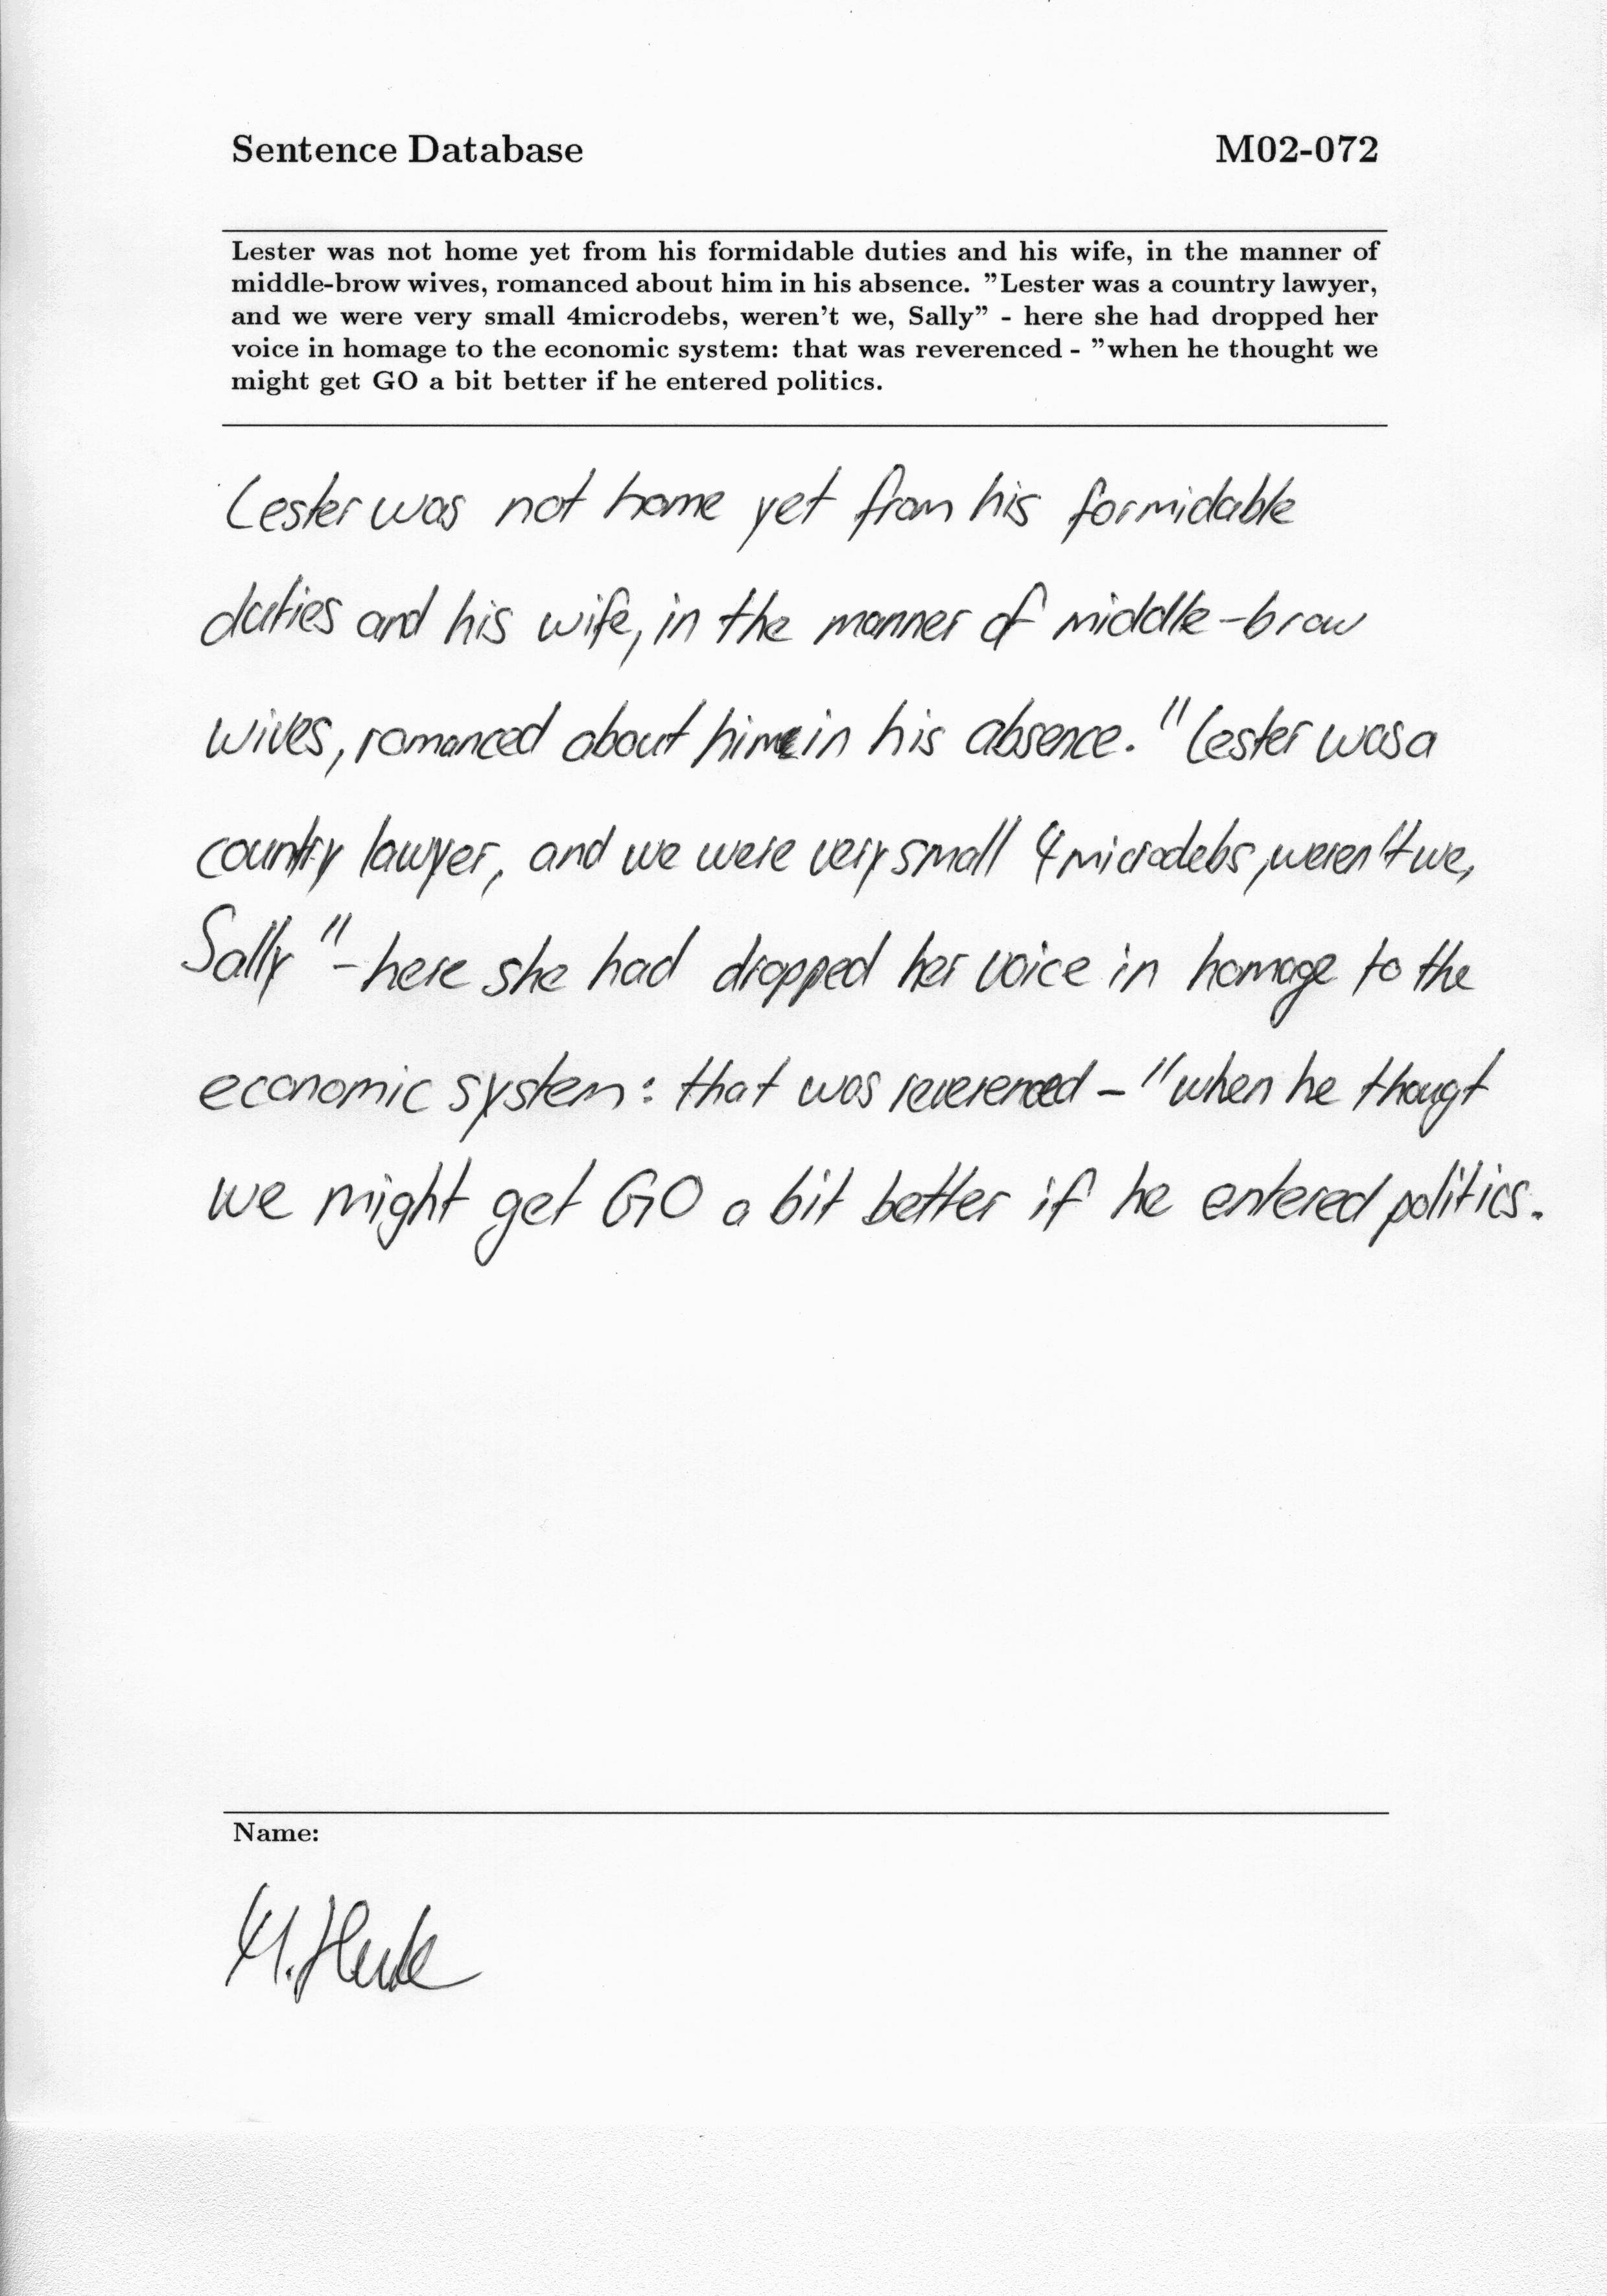 Sentence Database M02-072
Lester was not home yet from his formidable duties and his wife, in the manner of
middle-brow wives, romanced about him in his absence. "Lester was a country lawyer,
and we were very small 4microdebs, weren't we, Sally" - here she had dropped her
voice in homage to the economic system: that was reverenced - "when he thought we
might get GO a bit better if he entered politics.
Lester was not home yet from his formidable
duties and his wife, in the manner of middle-brow
wives, romanced about him in his absence. "Lester was a
country lawyer, and we were very small 4microdebs, weren't we,
Sally" - here she had dropped her voice in homage to the
economic system: that was reverenced - "when he thougt
we might get GO a bit better if he entered politics.
Name: